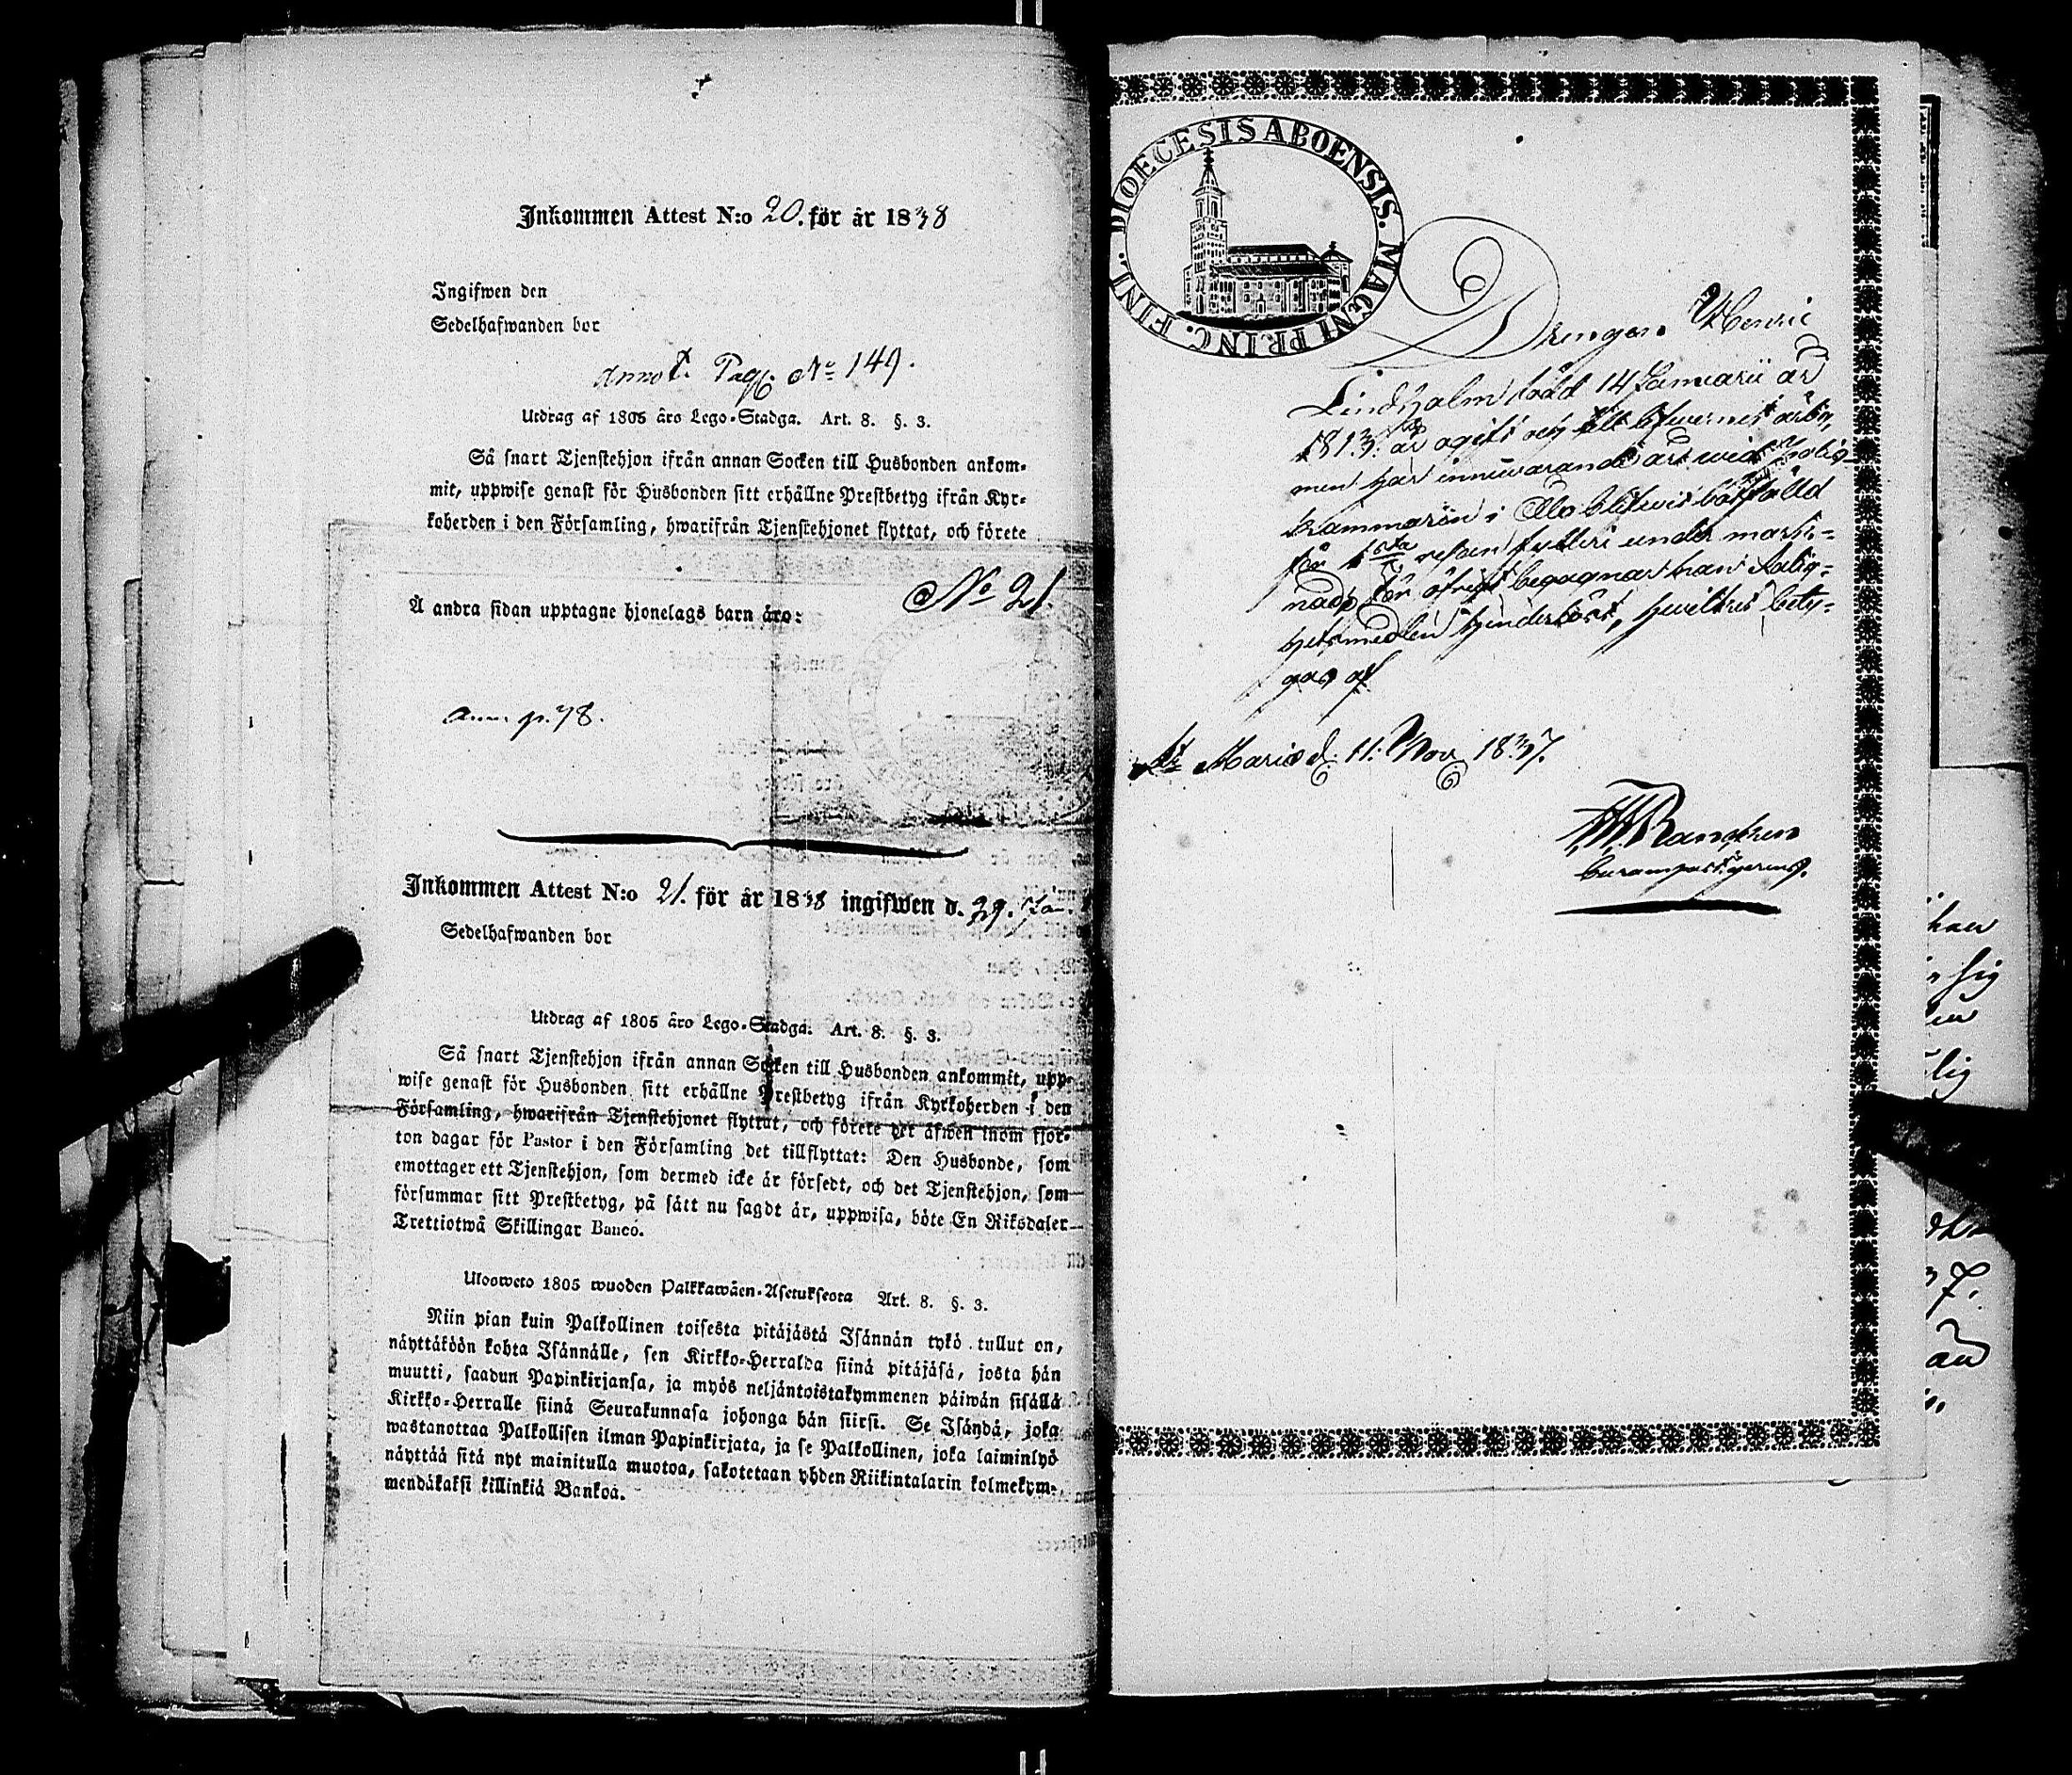 Inkommen Attest N:o 20. för år 1838
Ingifwen den
Sedelhafwanden bor
Annot. Pag. No 149.
Utdrag af 1805 års Lego-Stadga. Art. 8. §. 3.
Så snart Tjenstehjon ifrån annan Socken till Husbonden ankom-
mit, uppwise genast för Husbonden sitt erhållne Prestbetyg ifrån Kyr-
koherden i den Församling, hwarifrån Tjenstehjonet flyttat, och förete
No 21.
Å andra sidan upptagne hjonelags barn äro:
Ann. p. 78.
Inkommen Attest N:o 21. för år 1838 ingifwen d. 29. Jan.
Sedelhafwanden bor
Utdrag af 1805 års Lego-Stadga. Art. 8. §. 3.
Så snart Tjenstehjon ifrån annan Socken till Husbonden ankommit, upp-
wise genast för Husbonden sitt erhållne Prestbetyg ifrån Kyrkoherden i den
Församling, hwarifrån Tjenstehjonet flyttat, och förete det äfwen inom fjor-
ton dagar för Pastor i den Församling det tillflyttat: Den Husbonde, som
emottager ett Tjenstehjon, som dermed icke är försedt, och det Tjenstehjon, som
försummar sitt Prestbetyg, på sätt nu sagdt är, uppwisa, böte En Riksdaler
Trettiotwå Skillingar Banco.
Ulosweto 1805 wuoden Palkkawäen-Asetuksesta Art. 8. §. 3.
Niin pian kuin Palkollinen toisesta pitäjästä Isännän tykö tullut on,
näyttäköön kohta Isännälle, sen Kirkko-Herralda siinä pitäjäsä, josta hän
muutti, saadun Papinkirjansa, ja myös neljäntoistakymmenen päiwän sisällä
Kirkko-Herralle siinä Seurakunnasa johonga hän siirsi. Se Isändä, joka
wastanottaa Palkollisen ilman Papinkirjata, ja se Palkollinen, joka laiminlyö
näyttää sitä nyt mainitulla muotoa, sakotetaan yhden Riikintalarin kolmekym-
mendäkaksi killinkiä Bankoa.
DIOECESIS ABOENSIS. MAGNI PRINC. FINL.
Drengen Henric
Lindholm född 14 Januarii år
1813. är ogift och till lefwernet ärlig,
men har innewarande år wid Polis-
kammaren i Åbo blifwit botfälld
för 1sta resan fylleri under mark-
nad; för öfrigt begagnar han salig-
hetsmedlen hinderlöst, hwilket bety-
gas af
St Mariæ d. 11. Nov. 1837.